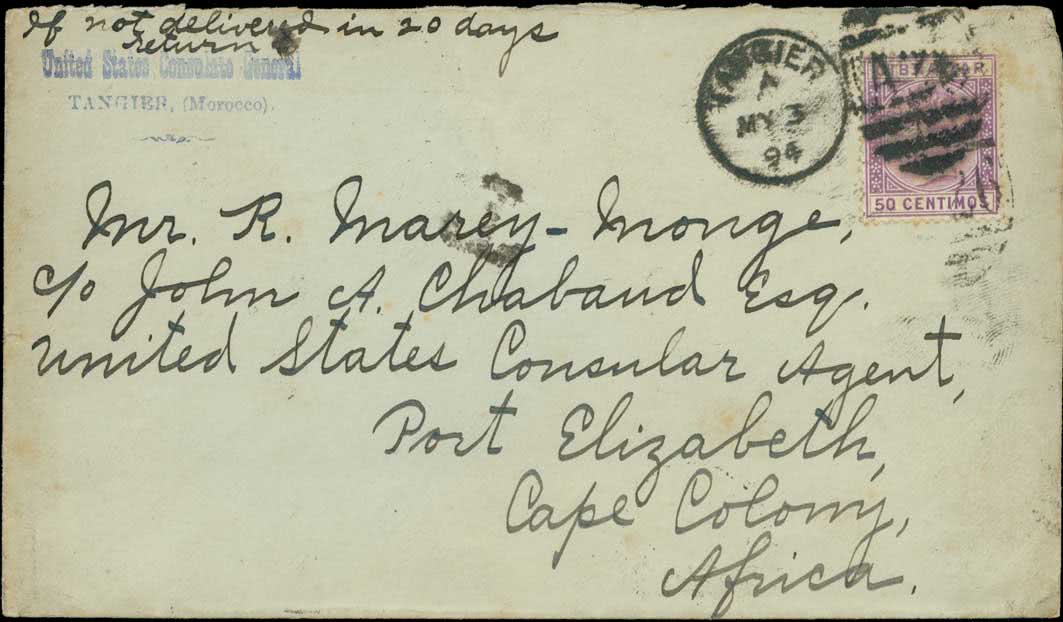 If not delivered in 20 days
return to
United States Consulate General
TANGIER, (Morocco).
TANGIER
A
MY 3
94
50 CENTIMOS
Mr. R. Marey-Monge,
c/o John A. Chabaud Esq.
United States Consular Agent,
Port Elizabeth,
Cape Colony,
Africa.